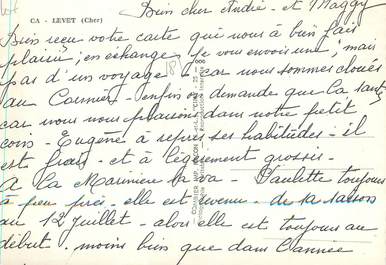 CA - LEVET (Cher)
Bien cher André - et Maggy
Bien reçu votre carte qui nous à bien fait
plaisir, en échange je vous envois une, mais
pas d'un voyage - car nous sommes cloués
au Cormier - enfin on demande que la santé
car nous nous plaisons dans notre petit
coin - Eugène à repris ses habitudes - il
est frais - et à légèrement grossi -
A la Marinier la va - Paulette toujours
à peu près - elle est revenu - de sa saison
au 12 juillet - alors elle est toujours au
début, moins bien que dans l'année